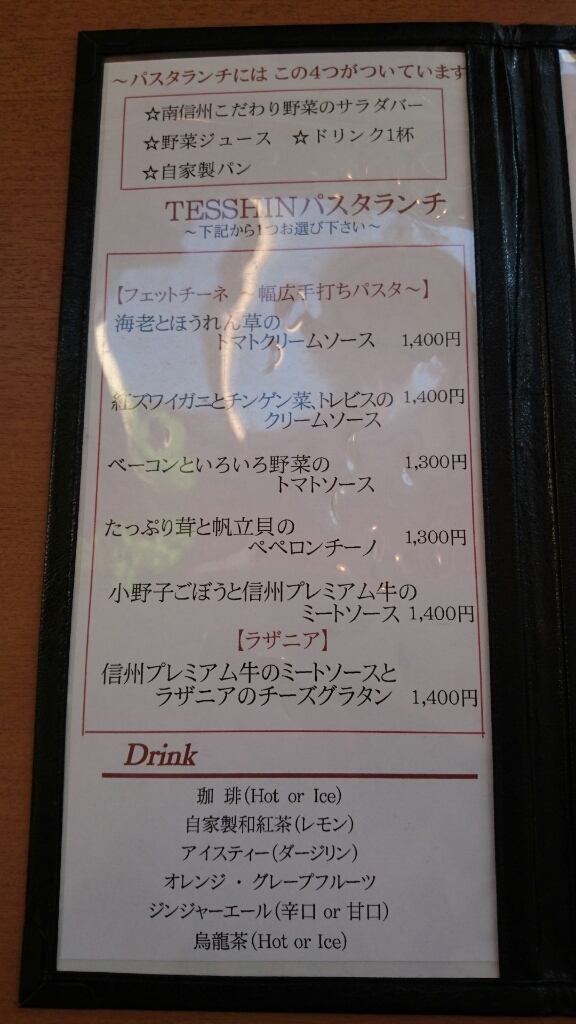 ～パスタランチには この4つがついています
☆南信州こだわり野菜のサラダバー
☆野菜ジュース ☆ドリンク1杯
☆自家製パン
TESSHINパスタランチ
～下記から1つお選び下さい～
【フェットチーネ ～幅広手打ちパスタ～】
海老とほうれん草の
トマトクリームソース 1,400円
紅ズワイガニとチンゲン菜､トレビスの 1,400円
クリームソース
ベーコンといろいろ野菜の 1,300円
トマトソース
たっぷり茸と帆立貝の
ペペロンチーノ 1,300円
小野子ごぼうと信州プレミアム牛の
ミートソース 1,400円
【ラザニア】
信州プレミアム牛のミートソースと
ラザニアのチーズグラタン 1,400円
Drink
珈 琲(Hot or Ice)
自家製和紅茶(レモン)
アイスティー(ダージリン)
オレンジ・グレープフルーツ
ジンジャーエール(辛口 or 甘口)
烏龍茶(Hot or Ice)